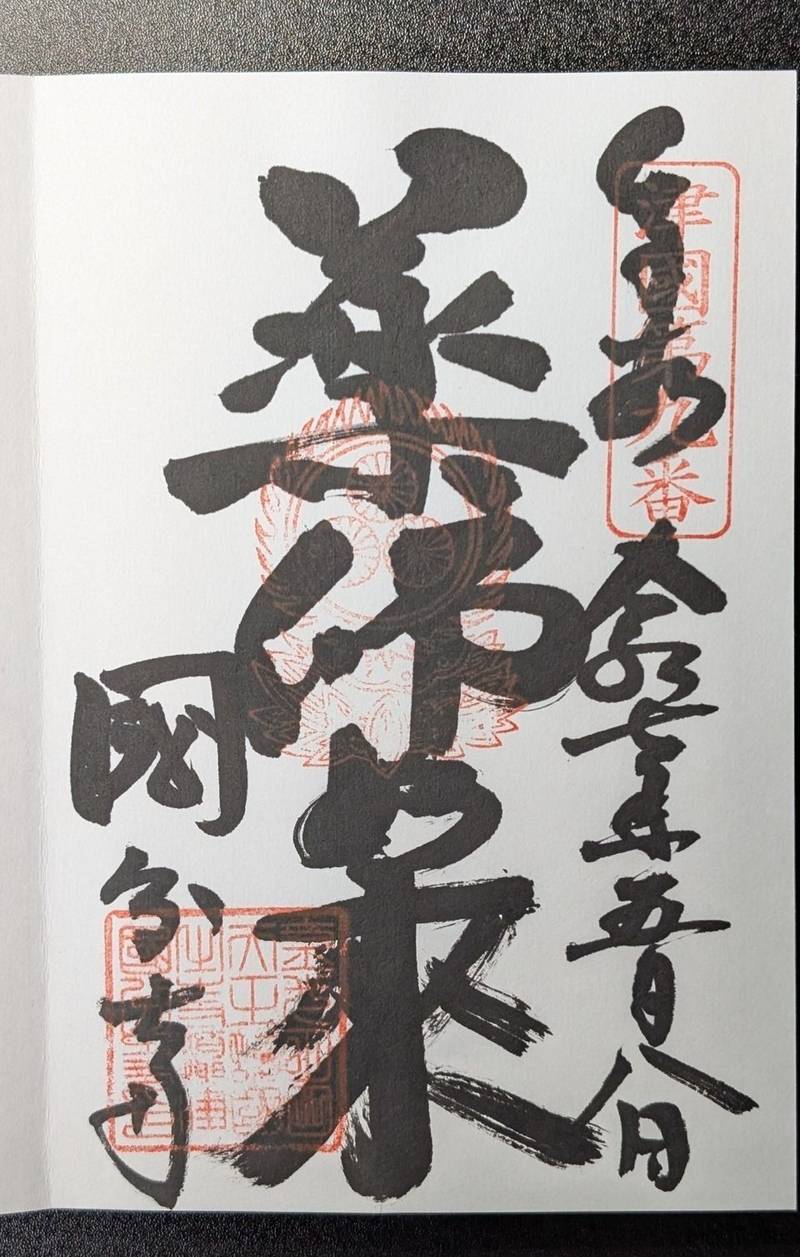 奉拝
津國第九番
令和七年五月八日
薬師如来
國分寺